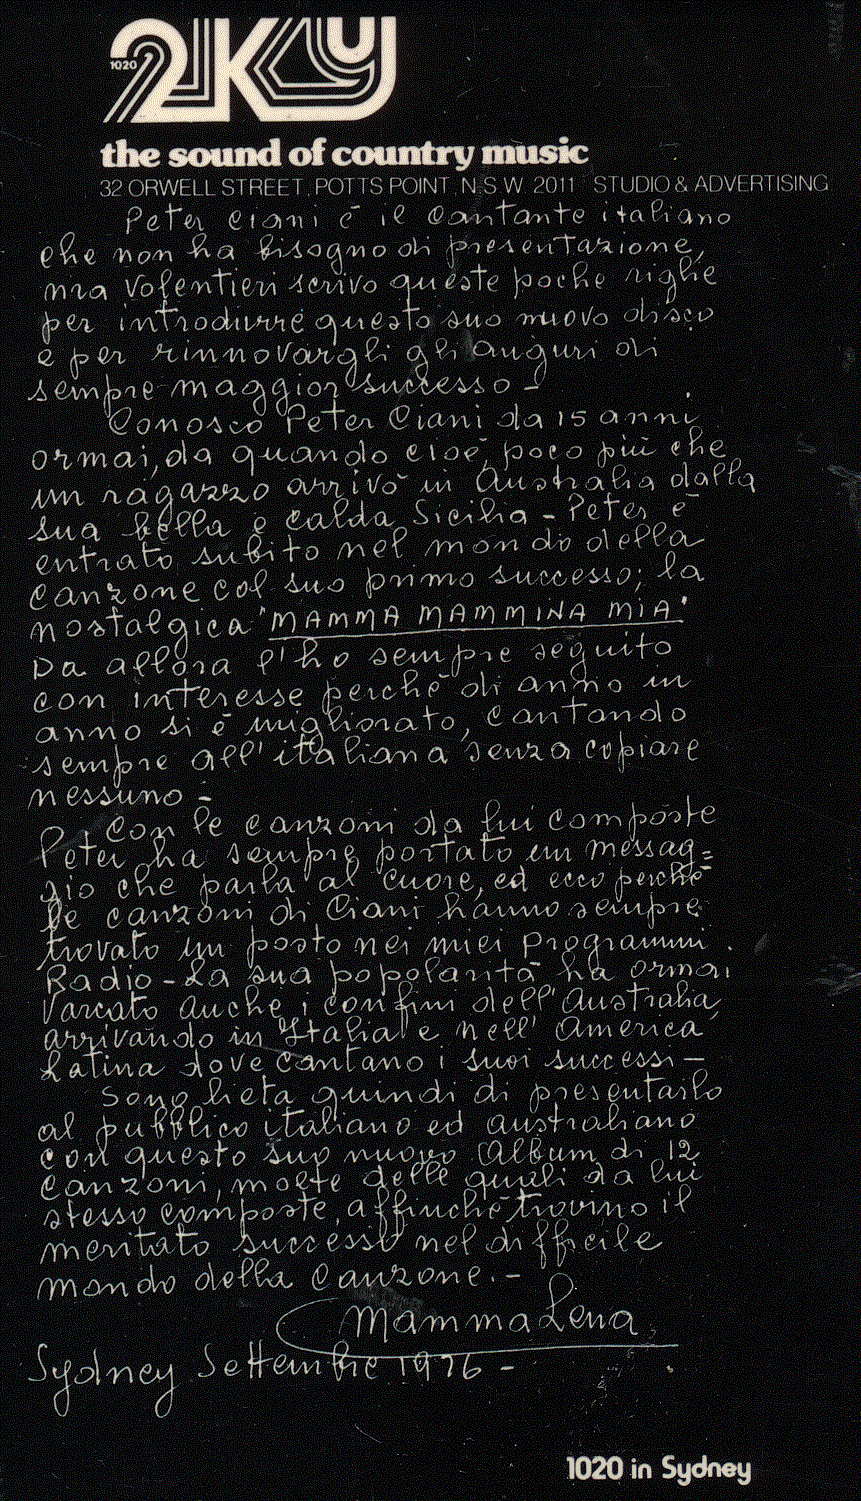 1020 2Ky
the sound of country music
32 ORWELL STREET, POTTS POINT, N.S.W. 2011 STUDIO & ADVERTISING
Peter Ciani è il cantante italiano
che non ha bisogno di presentazione,
ma volentieri scrivo queste poche righe
per introdurre questo suo nuovo disco
e per rinnovargli gli auguri di
sempre maggior successo -
Conosco Peter Ciani da 15 anni
ormai, da quando cioè, poco più che
un ragazzo arrivò in Australia dalla
sua bella e calda Sicilia - Peter è
entrato subito nel mondo della
canzone col suo primo successo; la
nostalgica "MAMMA MAMMINA MIA"
Da allora l'ho sempre seguito
con interesse perchè di anno in
anno si è migliorato, cantando
sempre all'italiana senza copiare
nessuno -
Con le canzoni da lui composte
Peter ha sempre portato un messag=
gio che parla al cuore, ed ecco perchè
le canzoni di Ciani hanno sempre
trovato un posto nei miei programmi
Radio - La sua popolarità ha ormai
varcato anche i confini dell'Australia,
arrivando in Italia e nell'America
Latina dove cantano i suoi successi -
Sono lieta quindi di presentarlo
al pubblico italiano ed australiano
con questo suo nuovo Album di 12
canzoni, molte delle quali da lui
stesso composte, affinchè trovino il
meritato successo nel difficile
mondo della canzone. -
Mamma Lena
Sydney Settembre 1976 -
1020 in Sydney